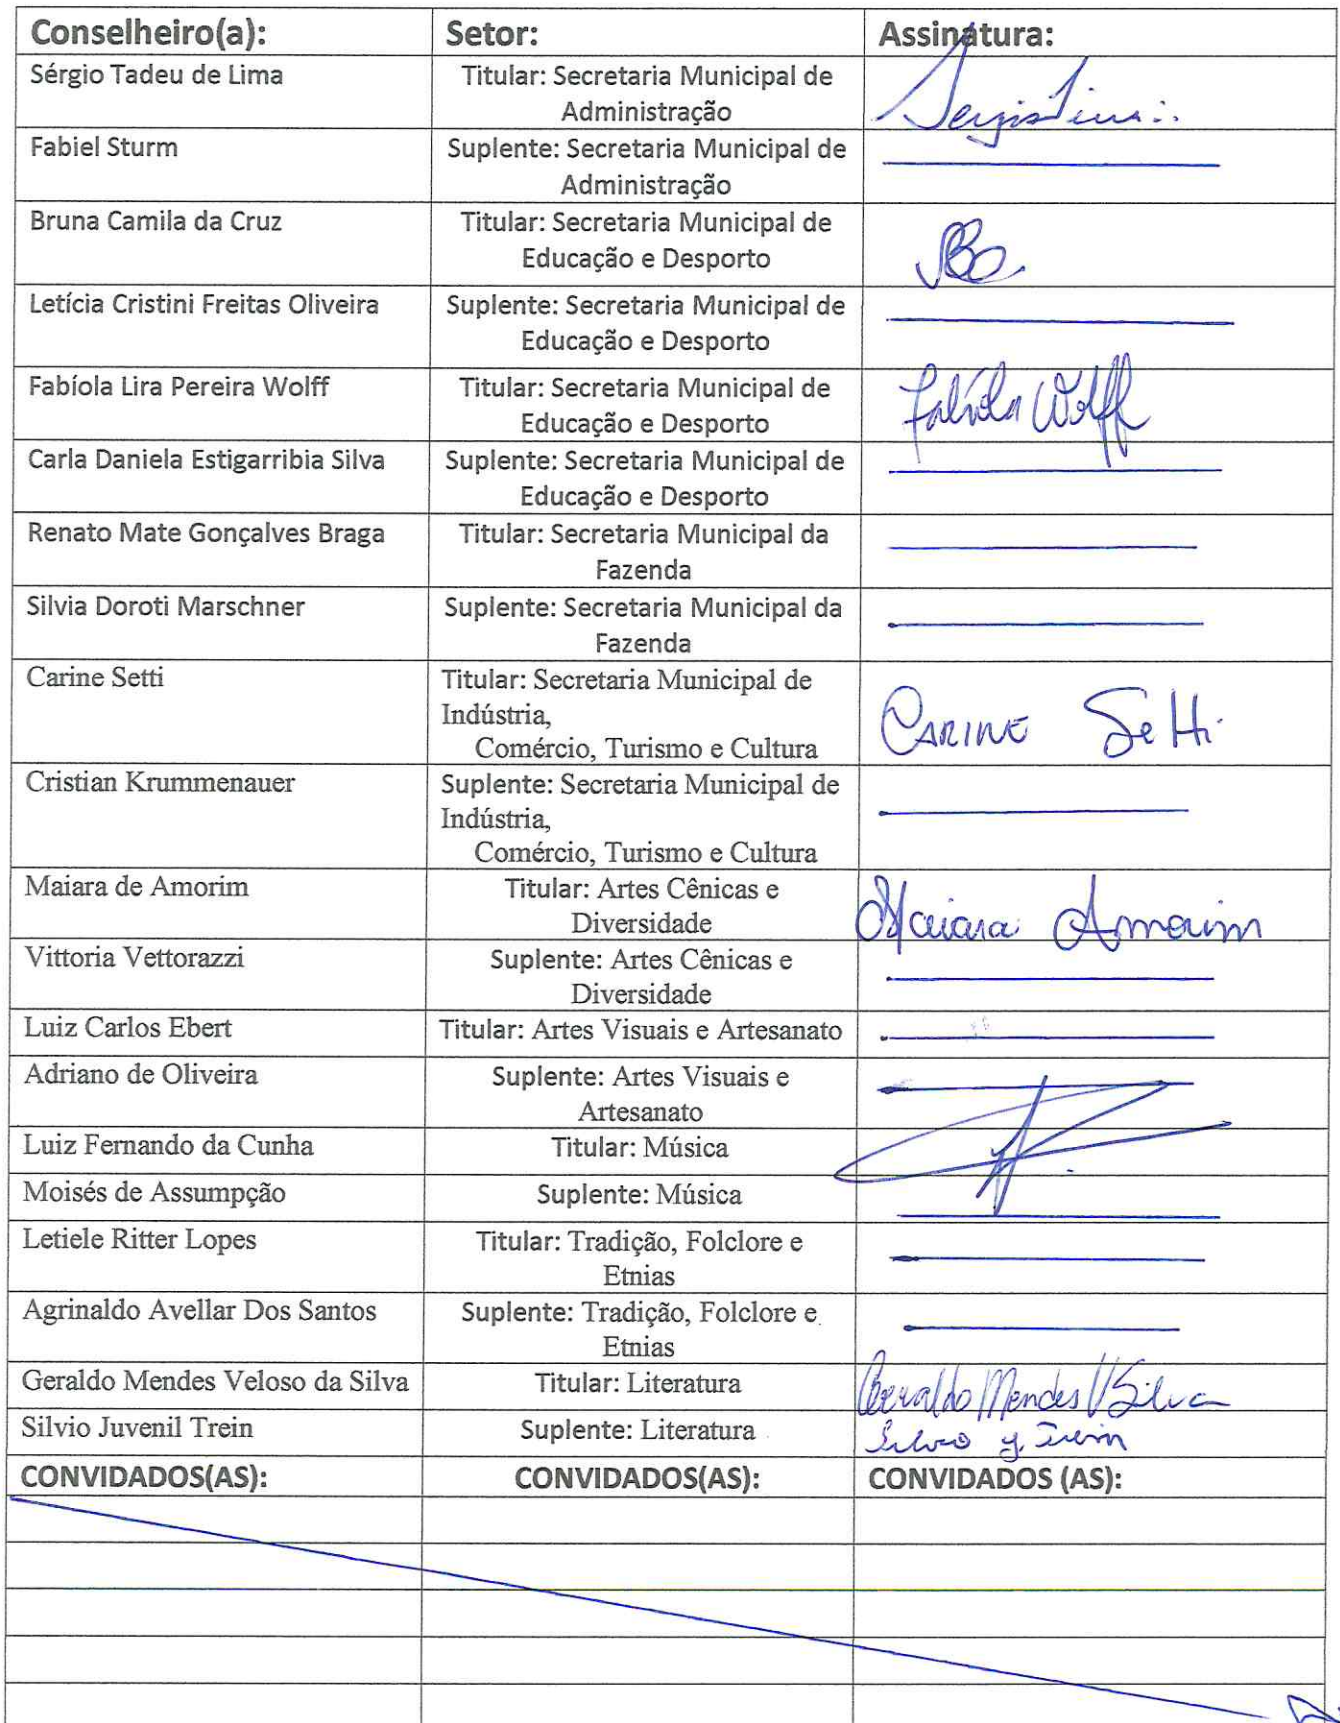 Conselheiro(a): Setor: Assinatura:
Sérgio Tadeu de Lima Titular: Secretaria Municipal de
Administração
Fabiel Sturm Suplente: Secretaria Municipal de
Administração
Bruna Camila da Cruz Titular: Secretaria Municipal de
Educação e Desporto
Letícia Cristini Freitas Oliveira Suplente: Secretaria Municipal de
Educação e Desporto
Fabíola Lira Pereira Wolff Titular: Secretaria Municipal de Fabíola Wolff
Educação e Desporto
Carla Daniela Estigarribia Silva Suplente: Secretaria Municipal de
Educação e Desporto
Renato Mate Gonçalves Braga Titular: Secretaria Municipal da
Fazenda
Silvia Doroti Marschner Suplente: Secretaria Municipal da
Fazenda
Carine Setti Titular: Secretaria Municipal de
Indústria, CARINE Setti
Comércio, Turismo e Cultura
Cristian Krummenauer Suplente: Secretaria Municipal de
Indústria,
Comércio, Turismo e Cultura
Maiara de Amorim Titular: Artes Cênicas e
Diversidade Maiara Amorim
Vittoria Vettorazzi Suplente: Artes Cênicas e
Diversidade
Luiz Carlos Ebert Titular: Artes Visuais e Artesanato
Adriano de Oliveira Suplente: Artes Visuais e
Artesanato
Luiz Fernando da Cunha Titular: Música
Moisés de Assumpção Suplente: Música
Letiele Ritter Lopes Titular: Tradição, Folclore e
Etnias
Agrinaldo Avellar Dos Santos Suplente: Tradição, Folclore e
Etnias
Geraldo Mendes Veloso da Silva Titular: Literatura Geraldo Mendes V Silva
Silvio Juvenil Trein Suplente: Literatura Silvio J. Trein
CONVIDADOS(AS): CONVIDADOS(AS): CONVIDADOS (AS):